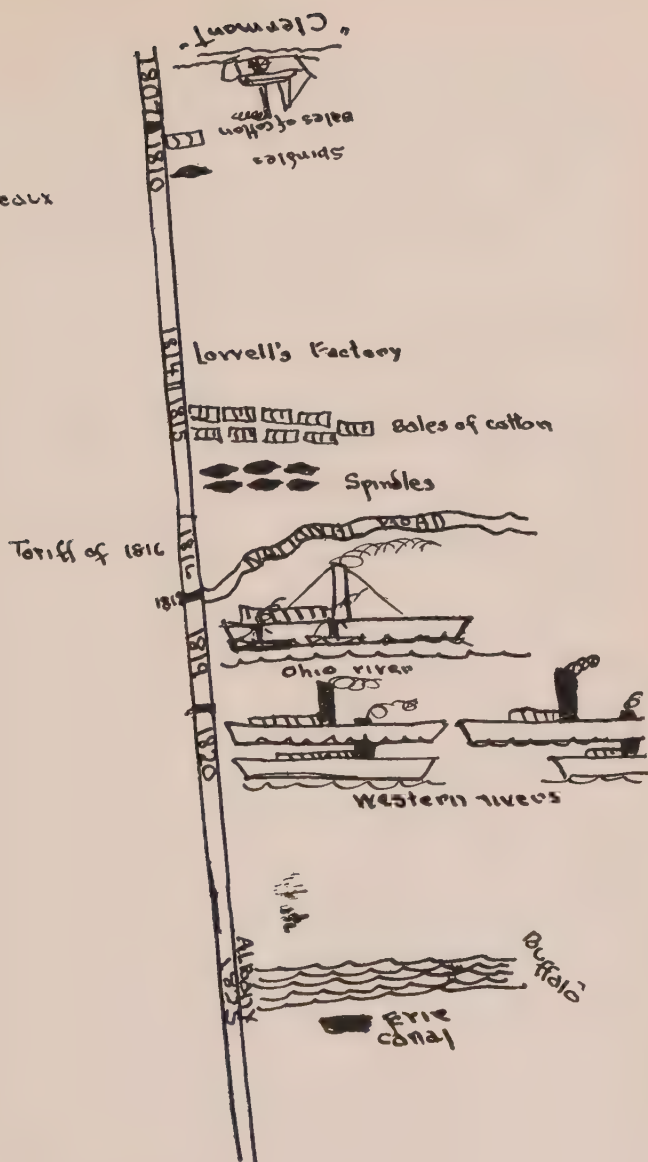 "Clermont"
1807
Bales of cotton
1810
Spindles
eaux
1814
Lowell's Factory
1815
Bales of cotton
Spindles
Tariff of 1816
1816
1818
1819
Ohio river
1820
Western rivers
ALBANY
1825
Buffalo
Erie
canal